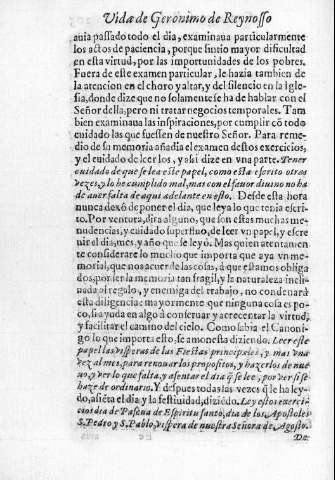 Vida de Geronimo de Reynosso
auia passado todo el dia, examinaua particularmente
los actos de paciencia, porque sintio mayor dificultad
en esta virtud, por las importunidades de los pobres.
Fuera de este examen particular, le hazia tambien de
la atencion en el choro y altar, y del silencio en la Igle-
sia, donde dize que no solamente se ha de hablar con el
Señor della, pero ni tratar negocios temporales. Tam
bien examinaua las inspiraciones, por cumplir cō todo
cuidado las que fuessen de nuestro Señor. Para reme-
dio de su memoria añadia el examen destos exercicios,
y el cuidado de leer los, y assi dize en vna parte. Tener
cuidado de que se lea este papel, como esta escrito otras
vezes, y lo he cumplido mal, mas con el fauor diuino no ha
de auer falta de aqui adelante en esto. Desde esta hora
nunca dexò de poner el dia, que leya lo que tenia escri-
to. Por ventura, dira alguno, que son estas muchas me-
nudencias, y cuidado superfluo, de leer vn papel, y escre
uir el dia, mes, y año que se leyó. Mas quien atentamen
te considerare lo mucho que importa que aya vn me-
morial, que nos acuerde las cosas, à que estamos obliga
dos, por ser la memoria tan fragil, y la naturaleza incli-
nada al regalo, y enemiga del trabajo, no condenarà
esta diligencia: mayormente que ninguna cosa es po-
co, si ayuda en algo à conseruar y acrecentar la virtud,
y facilitar el camino del cielo. Como sabia el Canoni-
go lo que importa esto, se amonesta diziendo. Leer este
papel las visperas de las Fiestas principales, y mas vna
vez al mes, para renouar los propositos, y hazerlos de nue-
uo, y ver lo que falta, y assentar el dia q̄ se lee, por ver si se
haze de ordinario. Y despues todas las vezes q̄ le ha ley-
do, assiēta el dia y la festiuidad, diziēdo. Ley estos exerci-
cios dia de Pascua de Espiritu santo, dia de los Apostoles
S. Pedro y S. Pablo, vispera de nuestra Señora de Agosto.
De